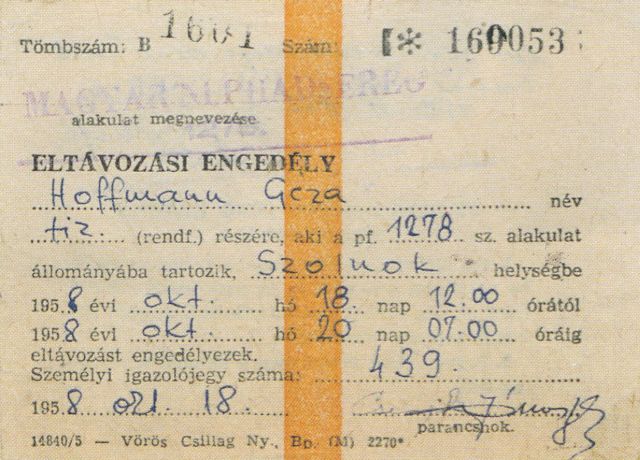 Tömbszám: B 1601 Szám: * 160053
MAGYAR NÉPHADSEREG
alakulat megnevezése
1278.
ELTÁVOZÁSI ENGEDÉLY
Hoffmann Géza név
tiz. (rendf.) részére, aki a pf. 1278 sz. alakulat
állományába tartozik, Szolnok helységbe
1958 évi okt. hó 18. nap 12.00 órától
1958 évi okt. hó 20 nap 07.00 óráig
eltávozást engedélyezek.
Személyi igazolójegy száma: 439.
1958 okt. 18.
parancsnok.
14840/5 — Vörös Csillag Ny., Bp. (M) 2270*